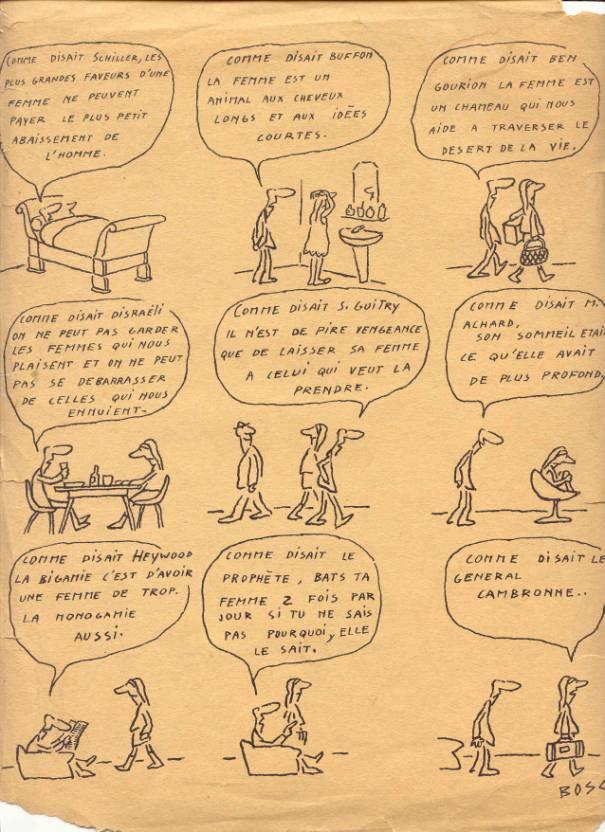 COMME DISAIT SCHILLER, LES
PLUS GRANDES FAVEURS D'UNE
FEMME NE PEUVENT
PAYER LE PLUS PETIT
ABAISSEMENT DE
L'HOMME.
COMME DISAIT BUFFON
LA FEMME EST UN
ANIMAL AUX CHEVEUX
LONGS ET AUX IDÉES
COURTES.
COMME DISAIT BEN
GOURION LA FEMME EST
UN CHAMEAU QUI NOUS
AIDE A TRAVERSER LE
DESERT DE LA VIE.
COMME DISAIT DISRAËLI
ON NE PEUT PAS GARDER
LES FEMMES QUI NOUS
PLAISENT ET ON NE PEUT
PAS SE DEBARRASSER
DE CELLES QUI NOUS
ENNUIENT-
COMME DISAIT S. GUITRY
IL N'EST DE PIRE VENGEANCE
QUE DE LAISSER SA FEMME
A CELUI QUI VEUT LA
PRENDRE.
COMME DISAIT M.
ACHARD,
SON SOMMEIL ETAIT
CE QU'ELLE AVAIT
DE PLUS PROFOND.
COMME DISAIT HEYWOOD
LA BIGAMIE C'EST D'AVOIR
UNE FEMME DE TROP.
LA MONOGAMIE
AUSSI.
COMME DISAIT LE
PROPHÈTE, BATS TA
FEMME 2 FOIS PAR
JOUR SI TU NE SAIS
PAS POURQUOI, ELLE
LE SAIT.
COMME DISAIT LE
GENERAL
CAMBRONNE..
BOSC